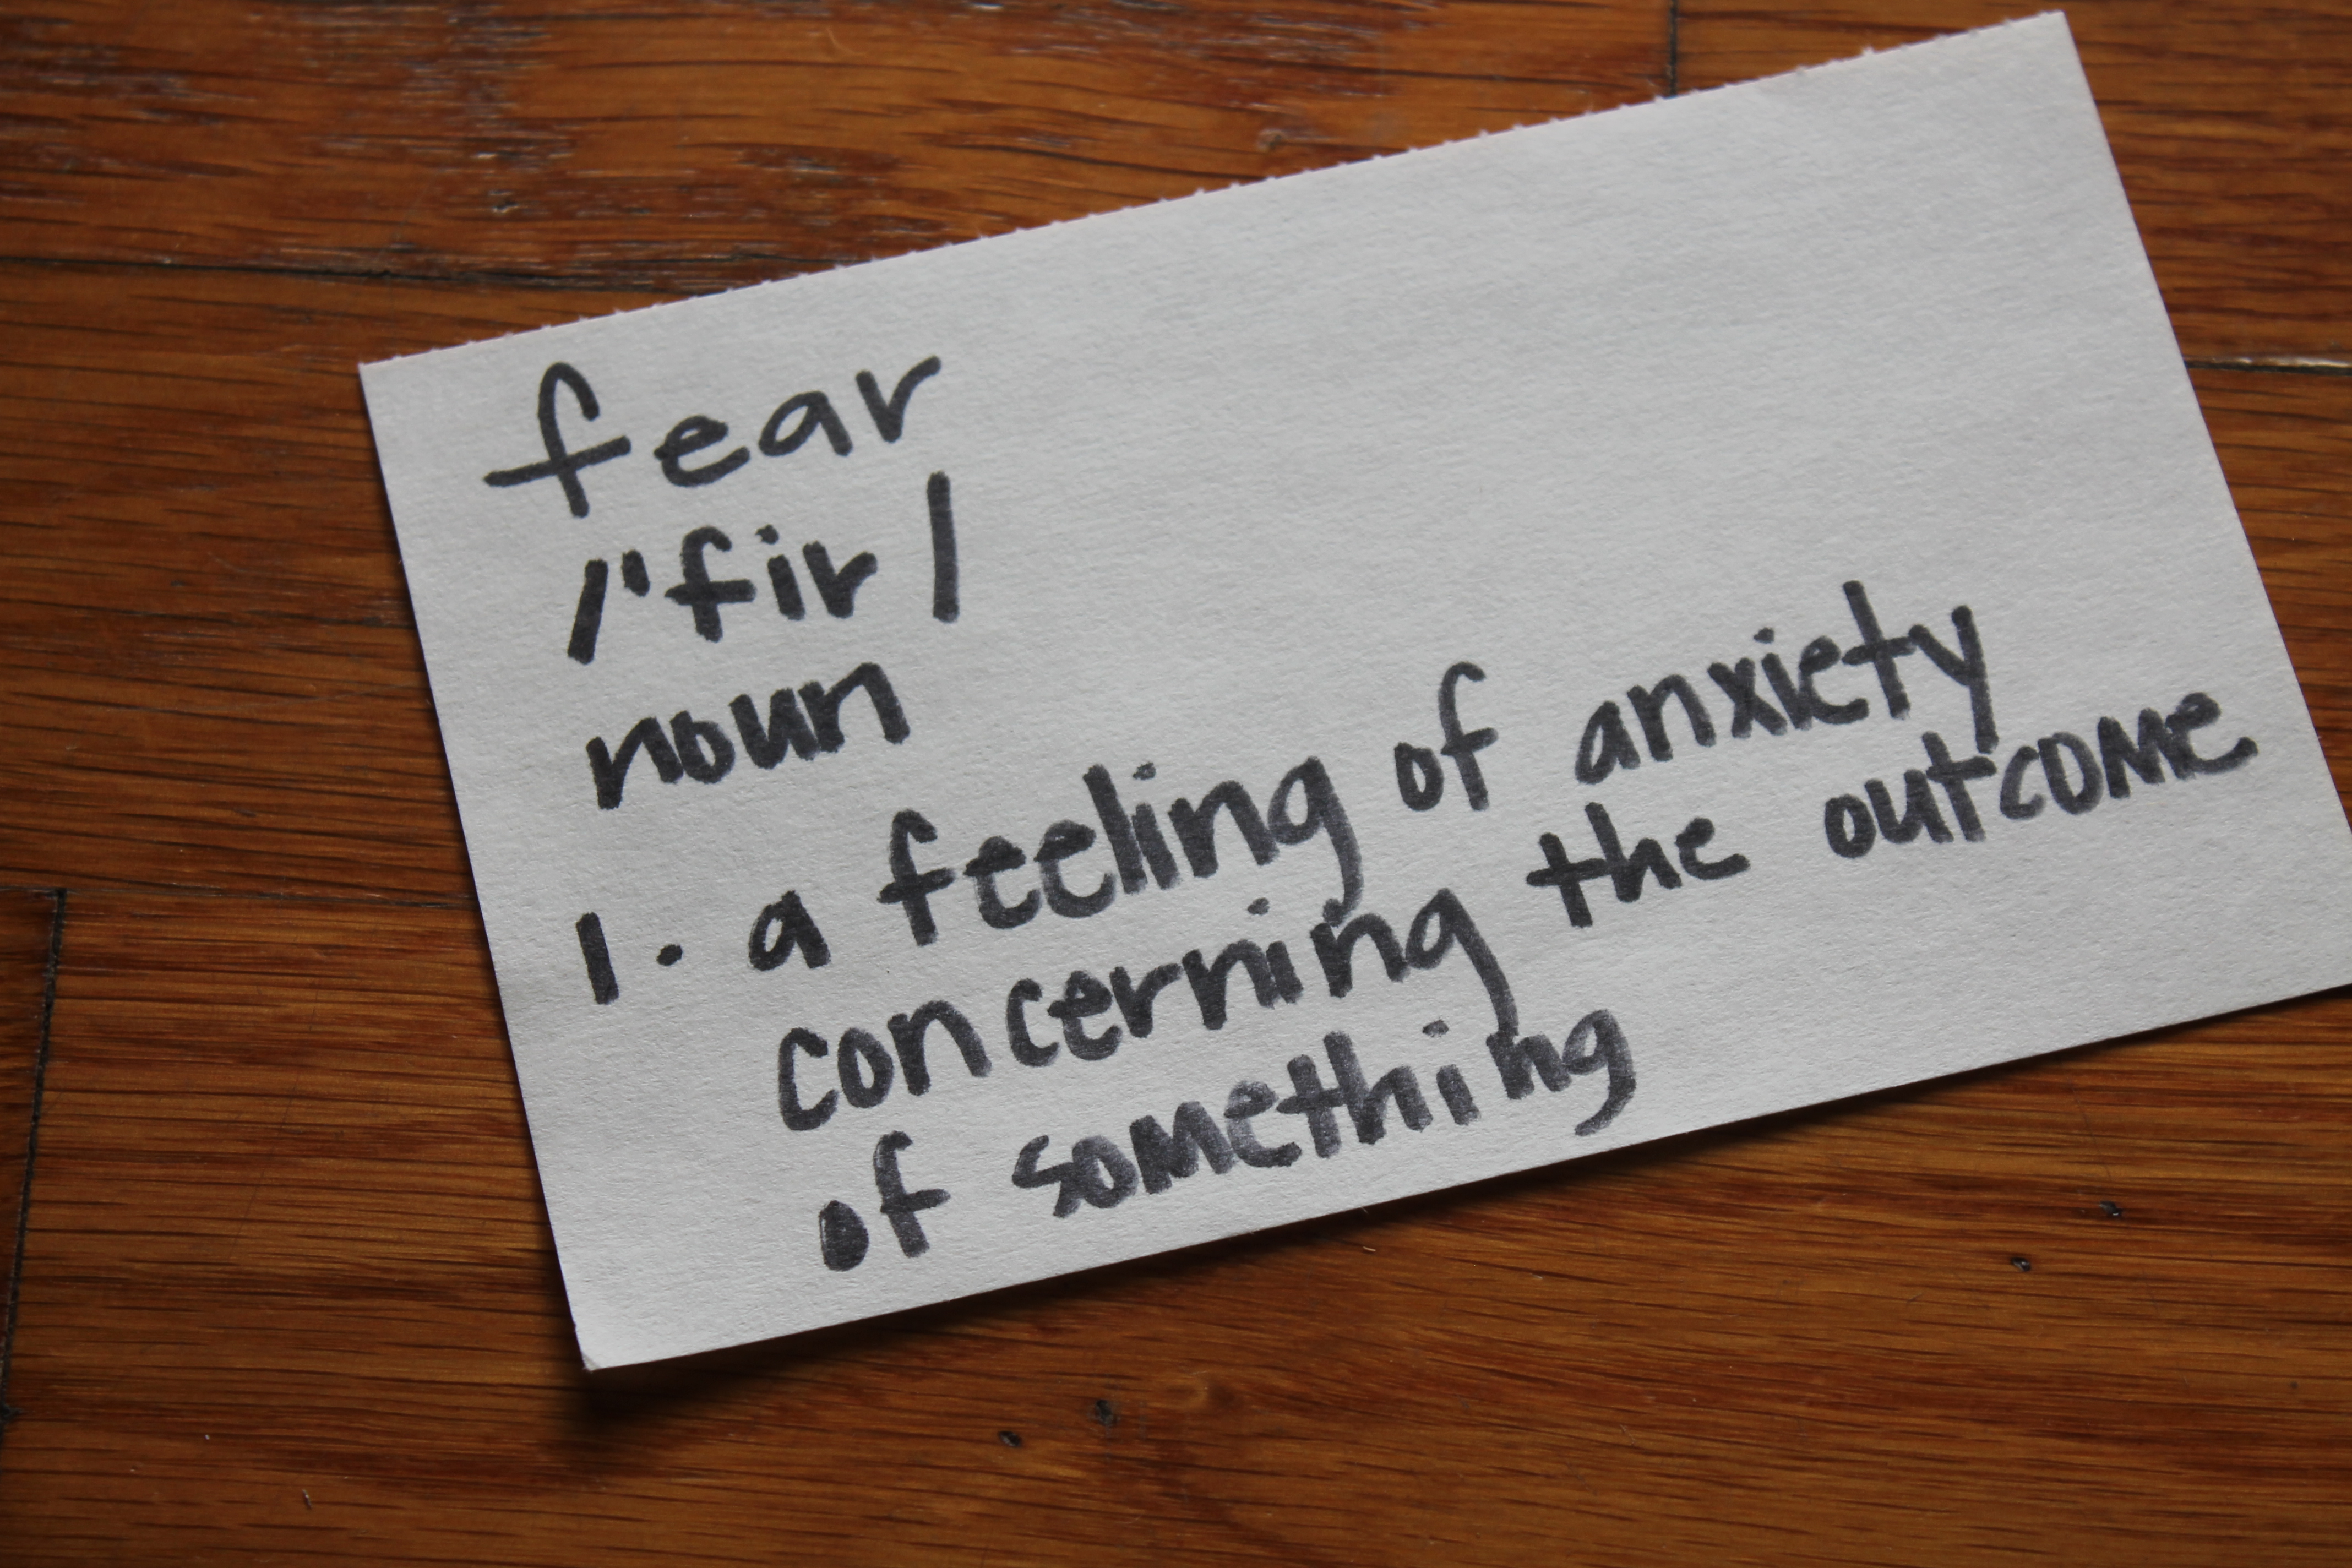 fear
/'fir/
noun
1. a feeling of anxiety
concerning the outcome
of something